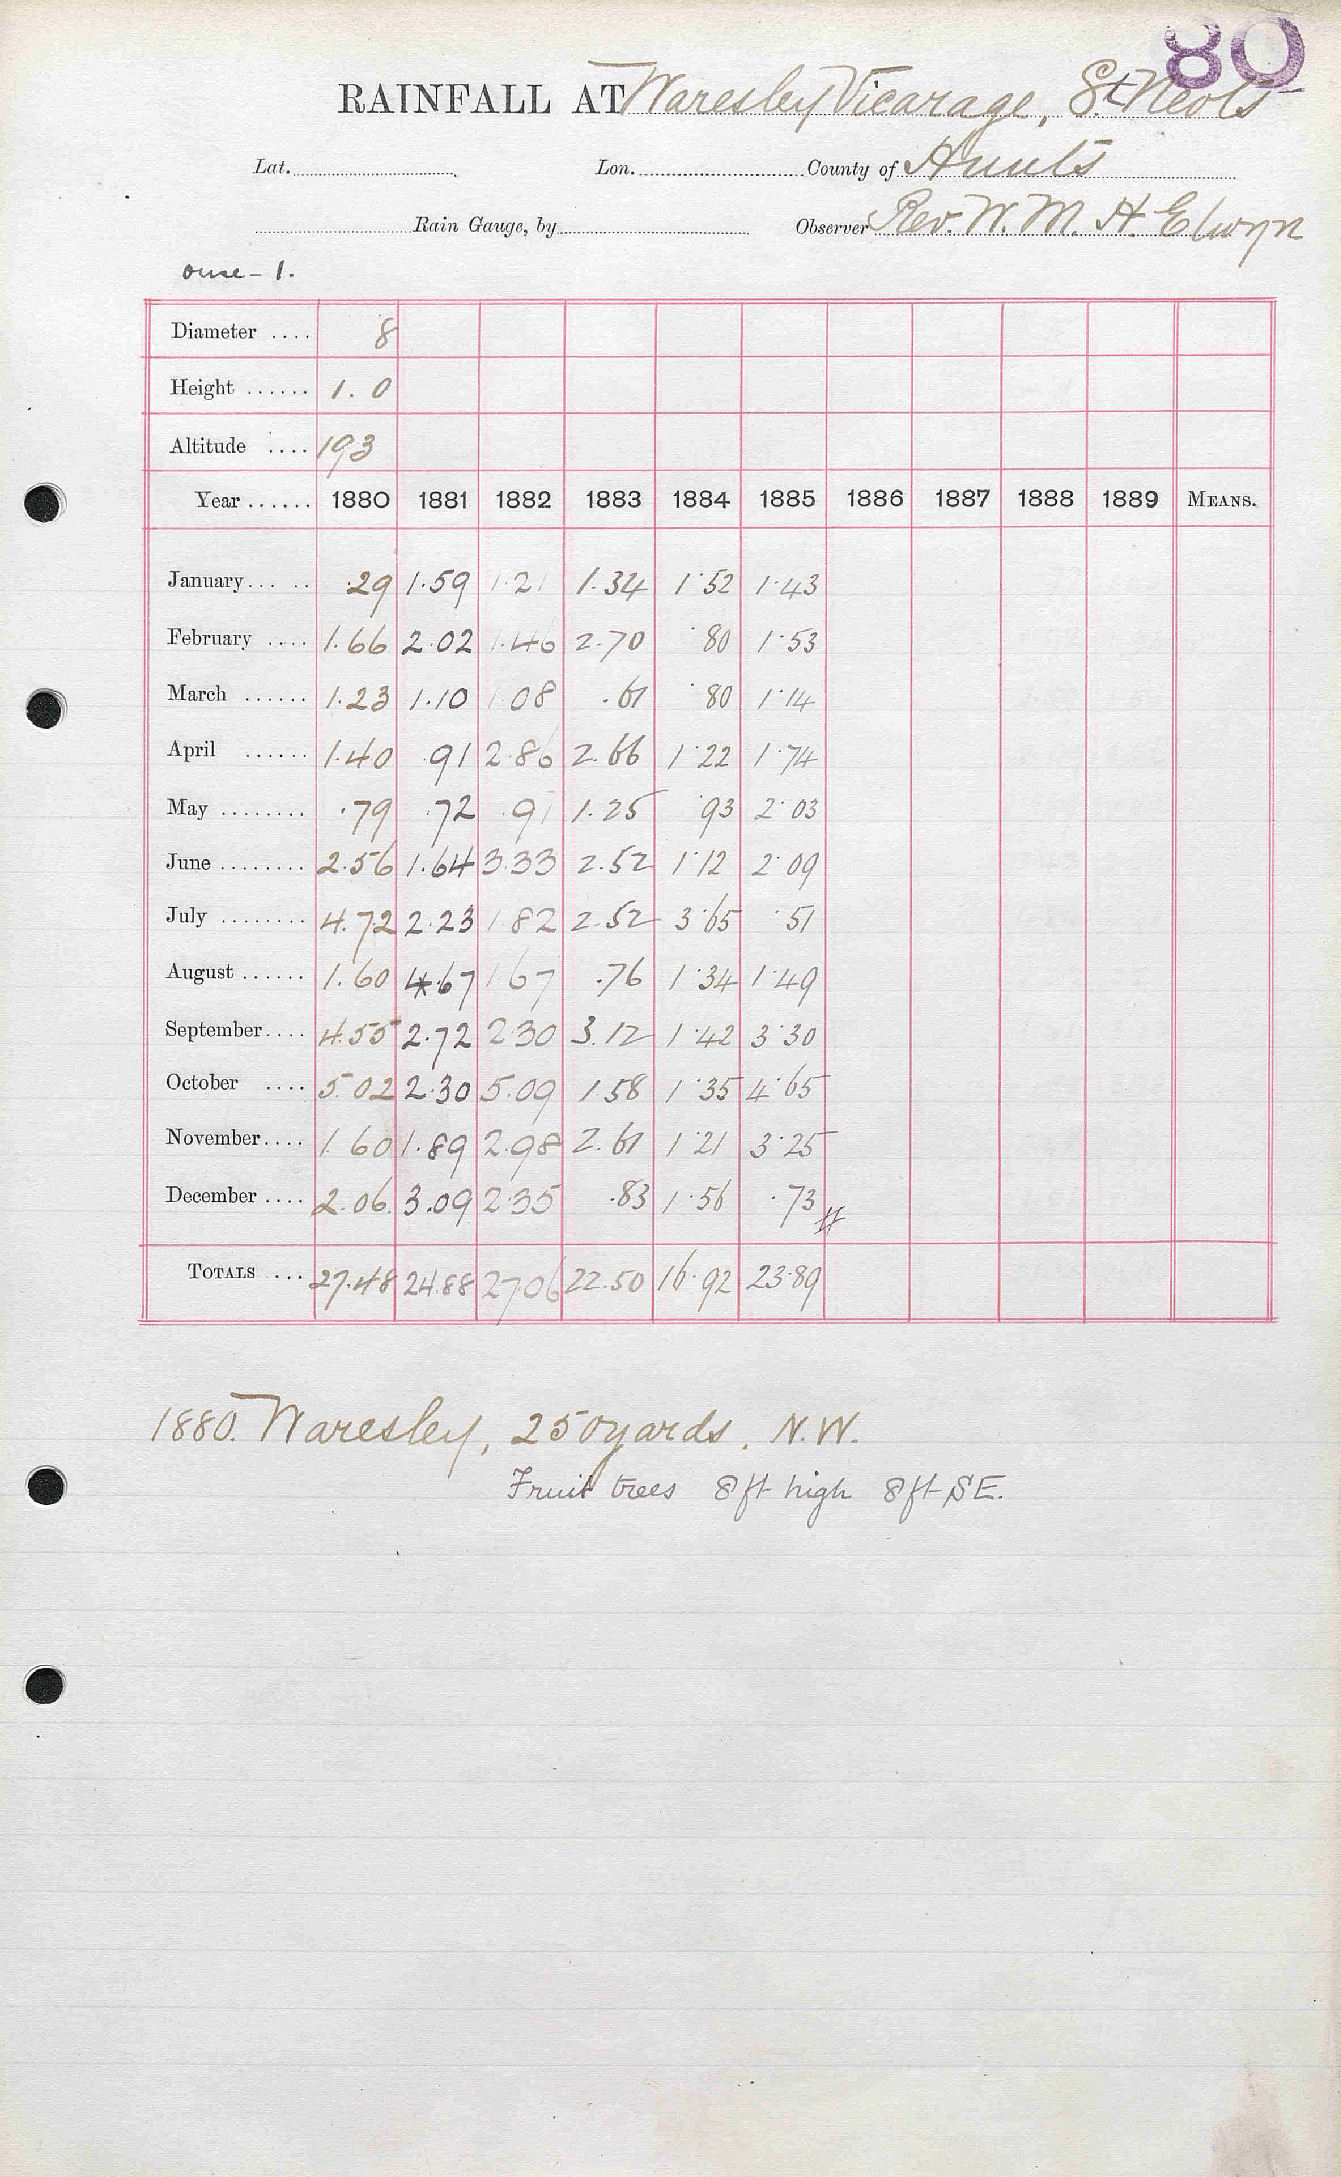 80
RAINFALL AT Waresley Vicarage, St Neots
Lat. Lon. County of Hunts
Rain Gauge, by Observer Rev. W. M. H. Elwyn
ouse - 1.
Diameter .... 8
Height ...... 1.0
Altitude .... 193
Year ...... 1880 1881 1882 1883 1884 1885 1886 1887 1888 1889 MEANS.
January ..... .29 1.59 1.21 1.34 1.52 1.43
February .... 1.66 2.02 1.46 2.70 .80 1.53
March ...... 1.23 1.10 1 08 .61 .80 1.14
April ...... 1.40 .91 2.86 2.66 1.22 1.74
May ........ .79 .72 .91 1.25 .93 2.03
June ........ 2.56 1.64 3.33 2.52 1.12 2.09
July ........ 4.72 2.23 1 82 2.52 3.65 .51
August ...... 1.60 4.67 1 67 .76 1.34 1.49
September .... 4.55 2.72 2.30 3.12 1.42 3.30
October .... 5.02 2.30 5.09 1.58 1.35 4.65
November .... 1.60 1.89 2.98 2.61 1.21 3.25
December .... 2.06 3.09 2.35 .83 1.56 .73 #
TOTALS ... 27.48 24.88 27 06 22.50 16.92 23.89
1880. Waresley, 250 yards. N.W.
Fruit trees 8 ft high 8 ft SE.